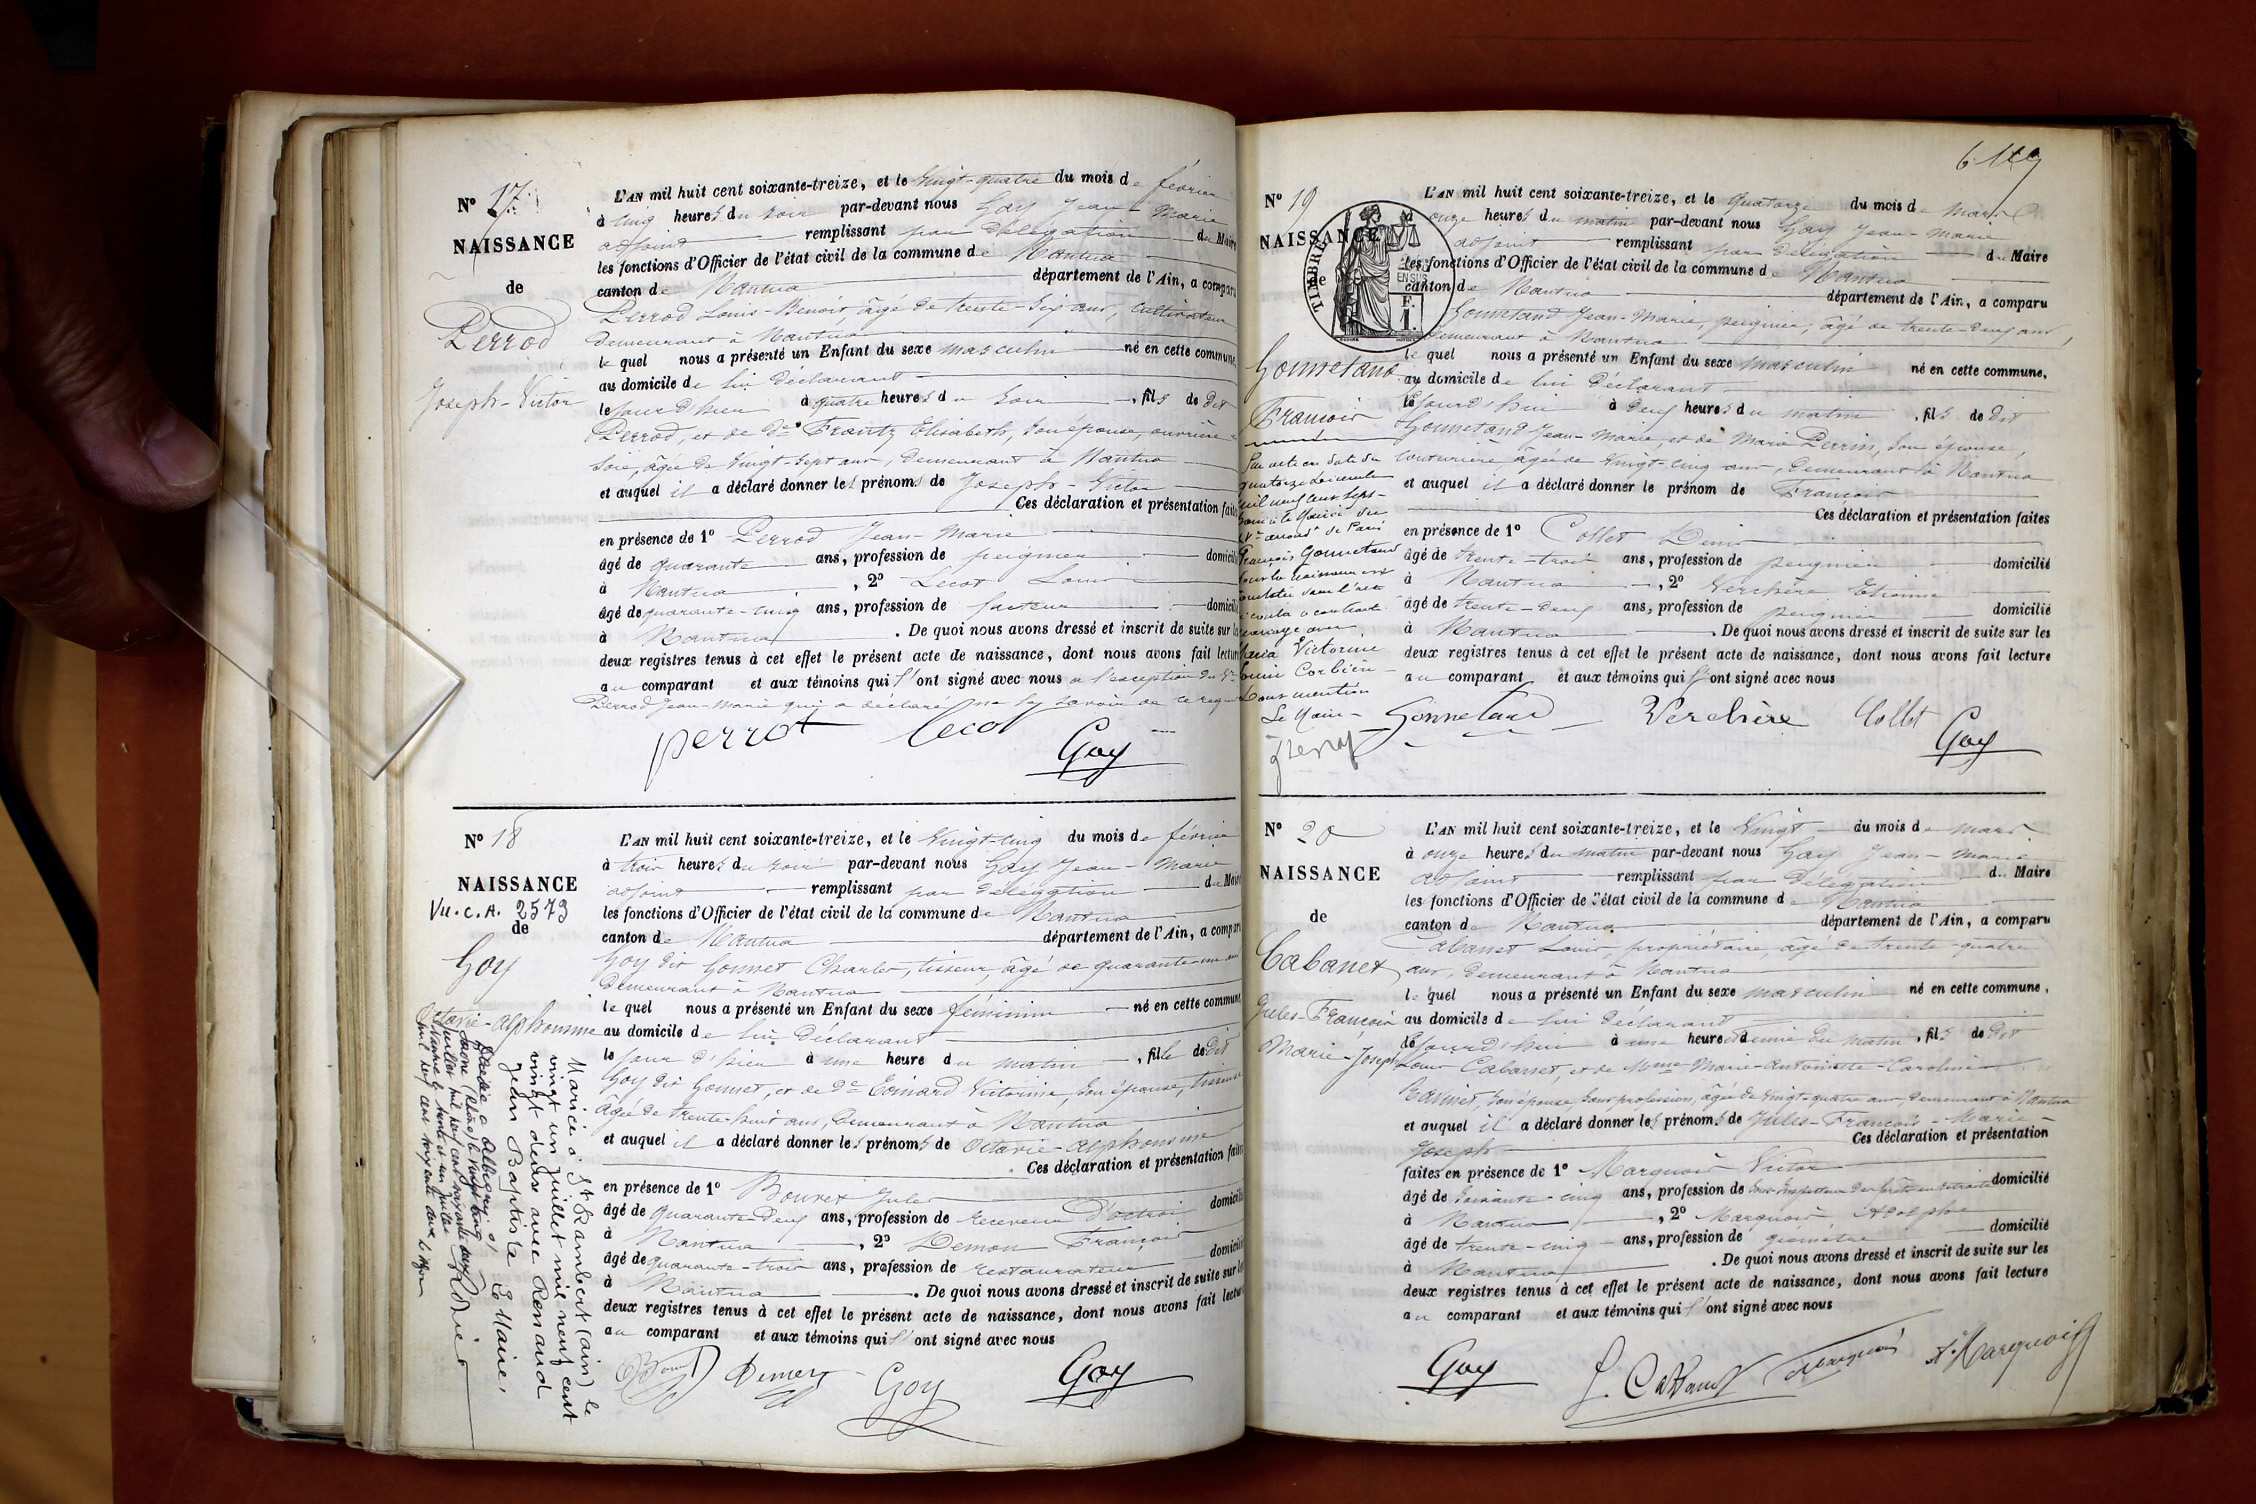 N° 17
NAISSANCE
de
Perrod
Joseph-Victor
L'AN mil huit cent soixante-treize, et le vingt-quatre du mois de février
à cinq heures du soir par-devant nous Goy Jean-Marie
adjoint remplissant par délégation du Maire
les fonctions d'Officier de l'état civil de la commune de Nantua
canton de Nantua département de l'Ain, a comparu
Perrod Louis-Benoit, âgé de trente-six ans, cultivateur
demeurant à Nantua
lequel nous a présenté un Enfant du sexe masculin né en cette commune,
au domicile de lui déclarant
le jour d'hui à quatre heures du soir, fils de dit
Perrod, et de De Frantz Elisabeth, son épouse, ouvrière en
soie, âgée de vingt-sept ans, demeurant à Nantua
et auquel il a déclaré donner les prénoms de Joseph-Victor
Ces déclaration et présentation faites
en présence de 1° Perrod Jean-Marie
âgé de quarante ans, profession de peigneur domicilié
à Nantua, 2° Lecot Louis
âgé de quarante-cinq ans, profession de facteur domicilié
à Nantua. De quoi nous avons dressé et inscrit de suite sur les
deux registres tenus à cet effet le présent acte de naissance, dont nous avons fait lecture
au comparant et aux témoins qui l'ont signé avec nous à l'exception du Sr
Perrod Jean-Marie qui a déclaré ne le savoir de ce requis
perrot Lecot Goy
N° 18
NAISSANCE
Vu. C. A. 2573
de
Goy
Octavie-alphonsine
Mariée à St Rambert (ain) le
vingt un juillet mil neuf cent
vingt deux avec Renaud
Jean Baptiste
Le Maire,
Décédée à Albigny s/
Saone (Rhône) le vingt cinq
juillet mil neuf cent soixante deux
Nantua le trente et un juillet
mil neuf cent soixante deux
L'AN mil huit cent soixante-treize, et le vingt-cinq du mois de février
à trois heures du soir par-devant nous Goy Jean-Marie
adjoint remplissant par délégation du Maire
les fonctions d'Officier de l'état civil de la commune de Nantua
canton de Nantua département de l'Ain, a comparu
Goy dit Gonnet Charles, tisseur, âgé de quarante-un ans
demeurant à Nantua
lequel nous a présenté un Enfant du sexe féminin né en cette commune,
au domicile de lui déclarant
le jour d'hier à une heure du matin, fille de dit
Goy dit Gonnet, et de De Coinard Victorine, son épouse, tisseuse
âgée de trente-huit ans, demeurant à Nantua
et auquel il a déclaré donner les prénoms de Octavie-alphonsine
Ces déclaration et présentation faites
en présence de 1° Bouvet Jules
âgé de quarante-deux ans, profession de receveur d'octroi domicilié
à Nantua, 2° Demon François
âgé de quarante-trois ans, profession de restaurateur domicilié
à Nantua. De quoi nous avons dressé et inscrit de suite sur les
deux registres tenus à cet effet le présent acte de naissance, dont nous avons fait lecture
au comparant et aux témoins qui l'ont signé avec nous
Goy Goy
N° 19
NAISSANCE
de
TIMBRE
EN SUS
F.
1.
Gonnetand
François
Par acte en date du
quatorze décembre
mil neuf cent sept
François Gonnetand
dont la naissance est
constatée dans l'acte
ci contre a contracté
mariage avec
Maria Victorine
Corbière
Pour mention
Le Maire
L'AN mil huit cent soixante-treize, et le quatorze du mois de mars
à onze heures du matin par-devant nous Goy Jean-Marie
adjoint remplissant par délégation du Maire
les fonctions d'Officier de l'état civil de la commune de Nantua
canton de Nantua département de l'Ain, a comparu
Gonnetand Jean-Marie, peigneur, âgé de trente-deux ans,
demeurant à Nantua
lequel nous a présenté un Enfant du sexe masculin né en cette commune,
au domicile de lui déclarant
le jourd'hui à deux heures du matin, fils de dit
Gonnetand Jean-Marie, et de Marie Perrin, son épouse,
couturière, âgée de vingt-cinq ans, demeurant à Nantua
et auquel il a déclaré donner le prénom de François
Ces déclaration et présentation faites
en présence de 1° Collet Denis
âgé de trente-trois ans, profession de peigneur domicilié
à Nantua, 2° Verchère Etienne
âgé de trente-deux ans, profession de peigneur domicilié
à Nantua. De quoi nous avons dressé et inscrit de suite sur les
deux registres tenus à cet effet le présent acte de naissance, dont nous avons fait lecture
au comparant et aux témoins qui l'ont signé avec nous
Gonnetand Verchère Collet Goy
N° 20
NAISSANCE
de
Cabanet
Jules-François
Marie-Joseph
L'AN mil huit cent soixante-treize, et le vingt du mois de mars
à onze heures du matin par-devant nous Goy Jean-Marie
adjoint remplissant par délégation du Maire
les fonctions d'Officier de l'état civil de la commune de Nantua
canton de Nantua département de l'Ain, a comparu
Cabanet Louis, propriétaire, âgé de trente-quatre
ans, demeurant à Nantua
lequel nous a présenté un Enfant du sexe masculin né en cette commune,
au domicile de lui déclarant
le jourd'hui à une heure et demie du matin, fils de dit
Louis Cabanet, et de Mme Marie-Antoinette-Caroline
son épouse sans profession, âgée de vingt-quatre ans, demeurant à Nantua
et auquel il a déclaré donner les prénoms de Jules-François-Marie
Joseph Ces déclaration et présentation
faites en présence de 1° Marquois Victor
âgé de soixante-cinq ans, profession de sous-inspecteur des forêts en retraite domicilié
à Nantua, 2° Marquois Adolphe
âgé de trente-cinq ans, profession de géomètre domicilié
à Nantua. De quoi nous avons dressé et inscrit de suite sur les
deux registres tenus à cet effet le présent acte de naissance, dont nous avons fait lecture
au comparant et aux témoins qui l'ont signé avec nous
Goy Marquois A. Marquois